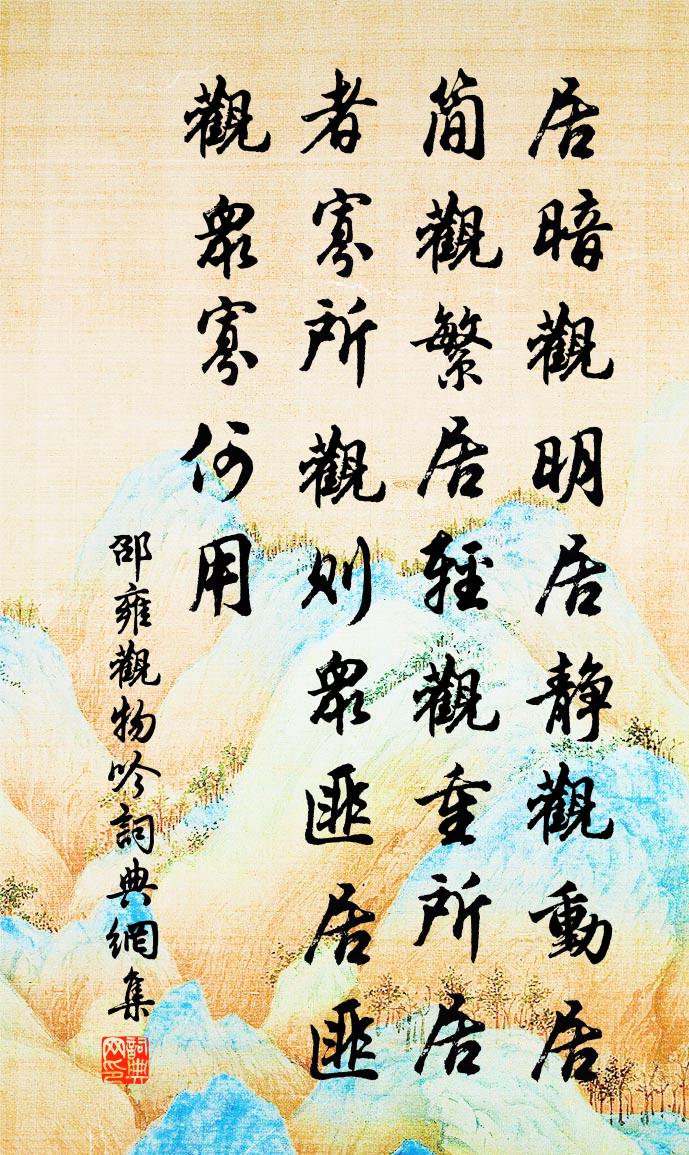 居暗觀明居静觀動居
简觀繁居輕觀重所居
者寡所觀則衆匪居匪
觀衆寡何用
邵雍觀物吟詞典網集
詞典網印